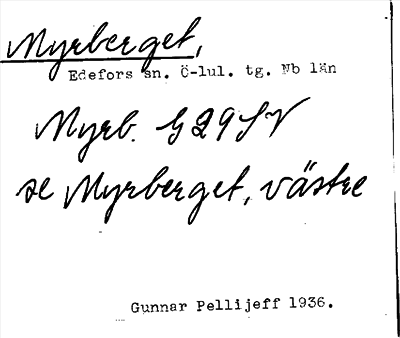 Myrberget,
Edefors sn. Ö-lul. tg. Nb län
Myrb. G29SV
se Myrberget, västre
Gunnar Pellijeff 1936.